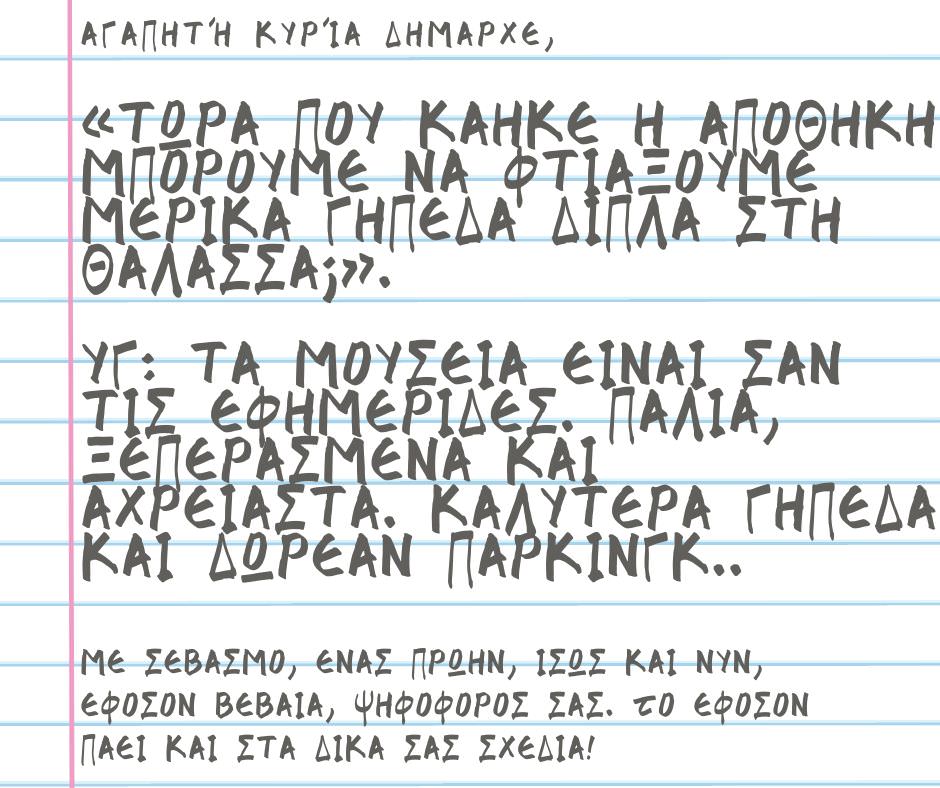 ΑΓΑΠΗΤΉ ΚΥΡΊΑ ΔΗΜΑΡΧΕ,
«ΤΩΡΑ ΠΟΥ ΚΑΗΚΕ Η ΑΠΟΘΗΚΗ
ΜΠΟΡΟΥΜΕ ΝΑ ΦΤΙΑΞΟΥΜΕ
ΜΕΡΙΚΑ ΓΗΠΕΔΑ ΔΙΠΛΑ ΣΤΗ
ΘΑΛΑΣΣΑ;».
ΥΓ: ΤΑ ΜΟΥΣΕΙΑ ΕΙΝΑΙ ΣΑΝ
ΤΙΣ ΕΦΗΜΕΡΙΔΕΣ. ΠΑΛΙΑ,
ΞΕΠΕΡΑΣΜΕΝΑ ΚΑΙ
ΑΧΡΕΙΑΣΤΑ. ΚΑΛΥΤΕΡΑ ΓΗΠΕΔΑ
ΚΑΙ ΔΩΡΕΑΝ ΠΑΡΚΙΝΓΚ..
ΜΕ ΣΕΒΑΣΜΟ, ΕΝΑΣ ΠΡΩΗΝ, ΙΣΩΣ ΚΑΙ ΝΥΝ,
ΕΦΟΣΟΝ ΒΕΒΑΙΑ, ΨΗΦΟΦΟΡΟΣ ΣΑΣ. ΤΟ ΕΦΟΣΟΝ
ΠΑΕΙ ΚΑΙ ΣΤΑ ΔΙΚΑ ΣΑΣ ΣΧΕΔΙΑ!